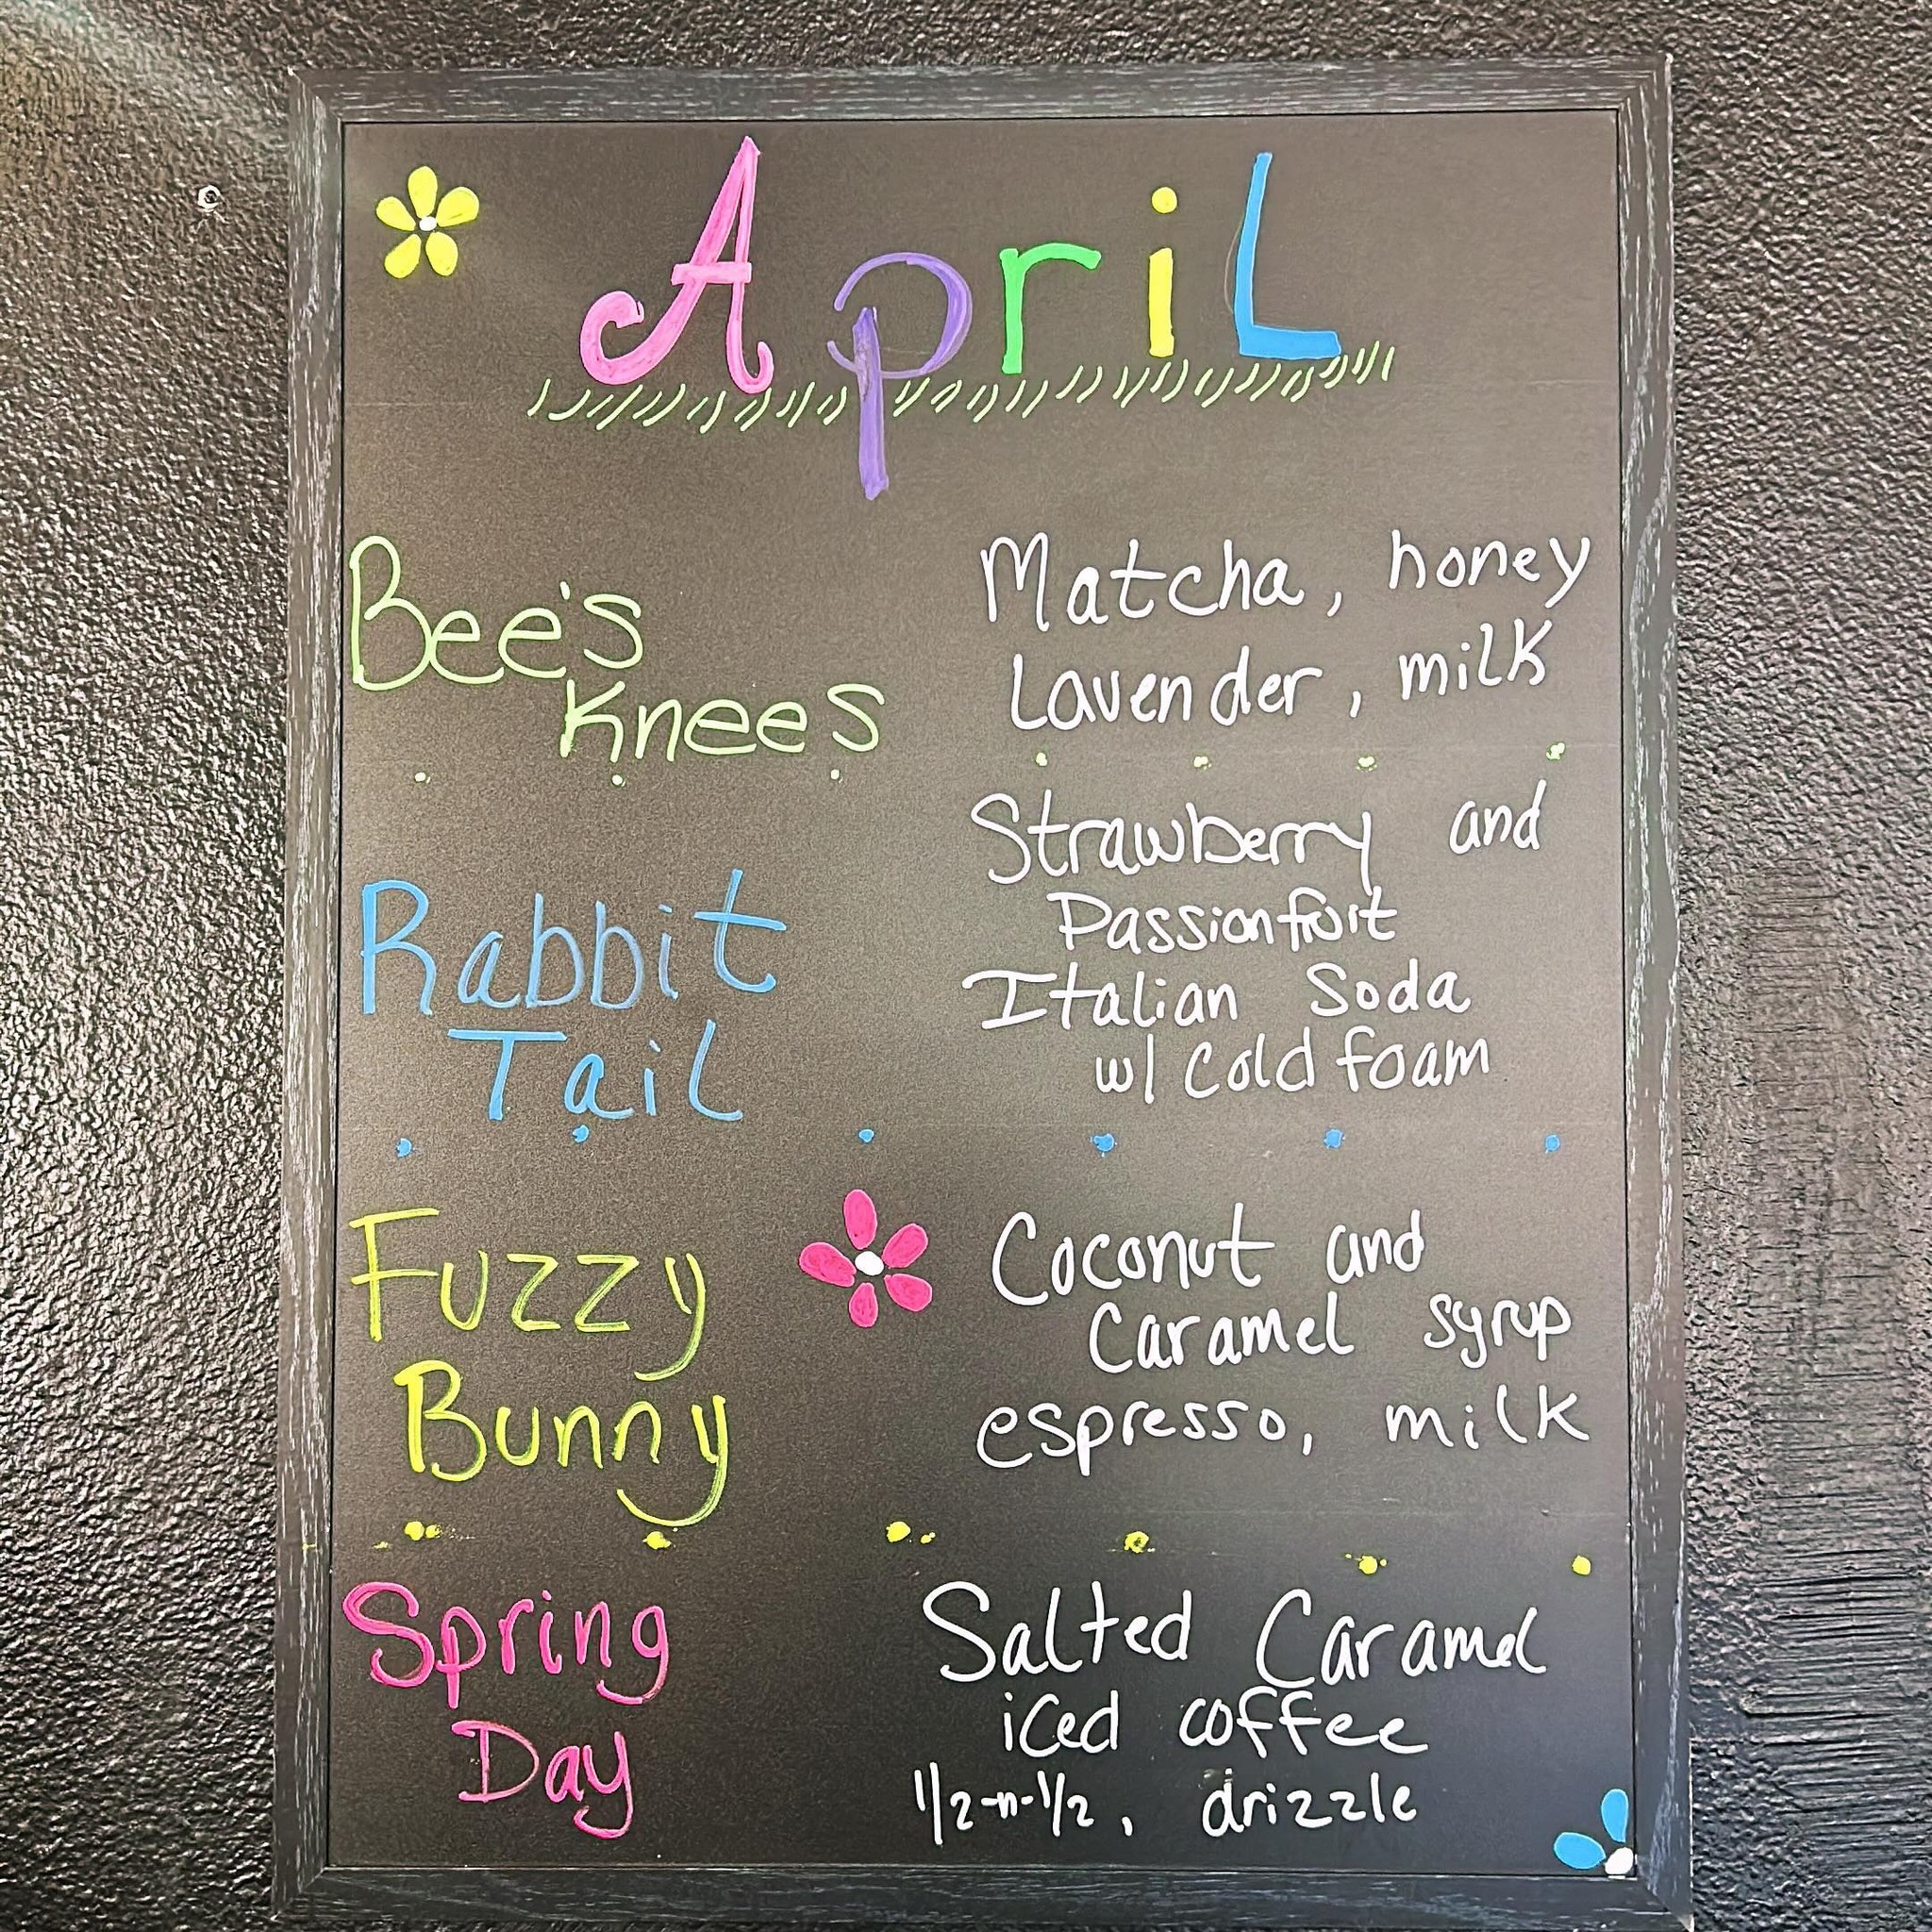 April
Bee's
Knees
Matcha, honey
Lavender, milk
Rabbit
Tail
Strawberry and
Passionfruit
Italian Soda
w/ cold foam
Fuzzy
Bunny
Coconut and
Caramel syrup
espresso, milk
Spring
Day
Salted Caramel
iced coffee
1/2-n-1/2, drizzle